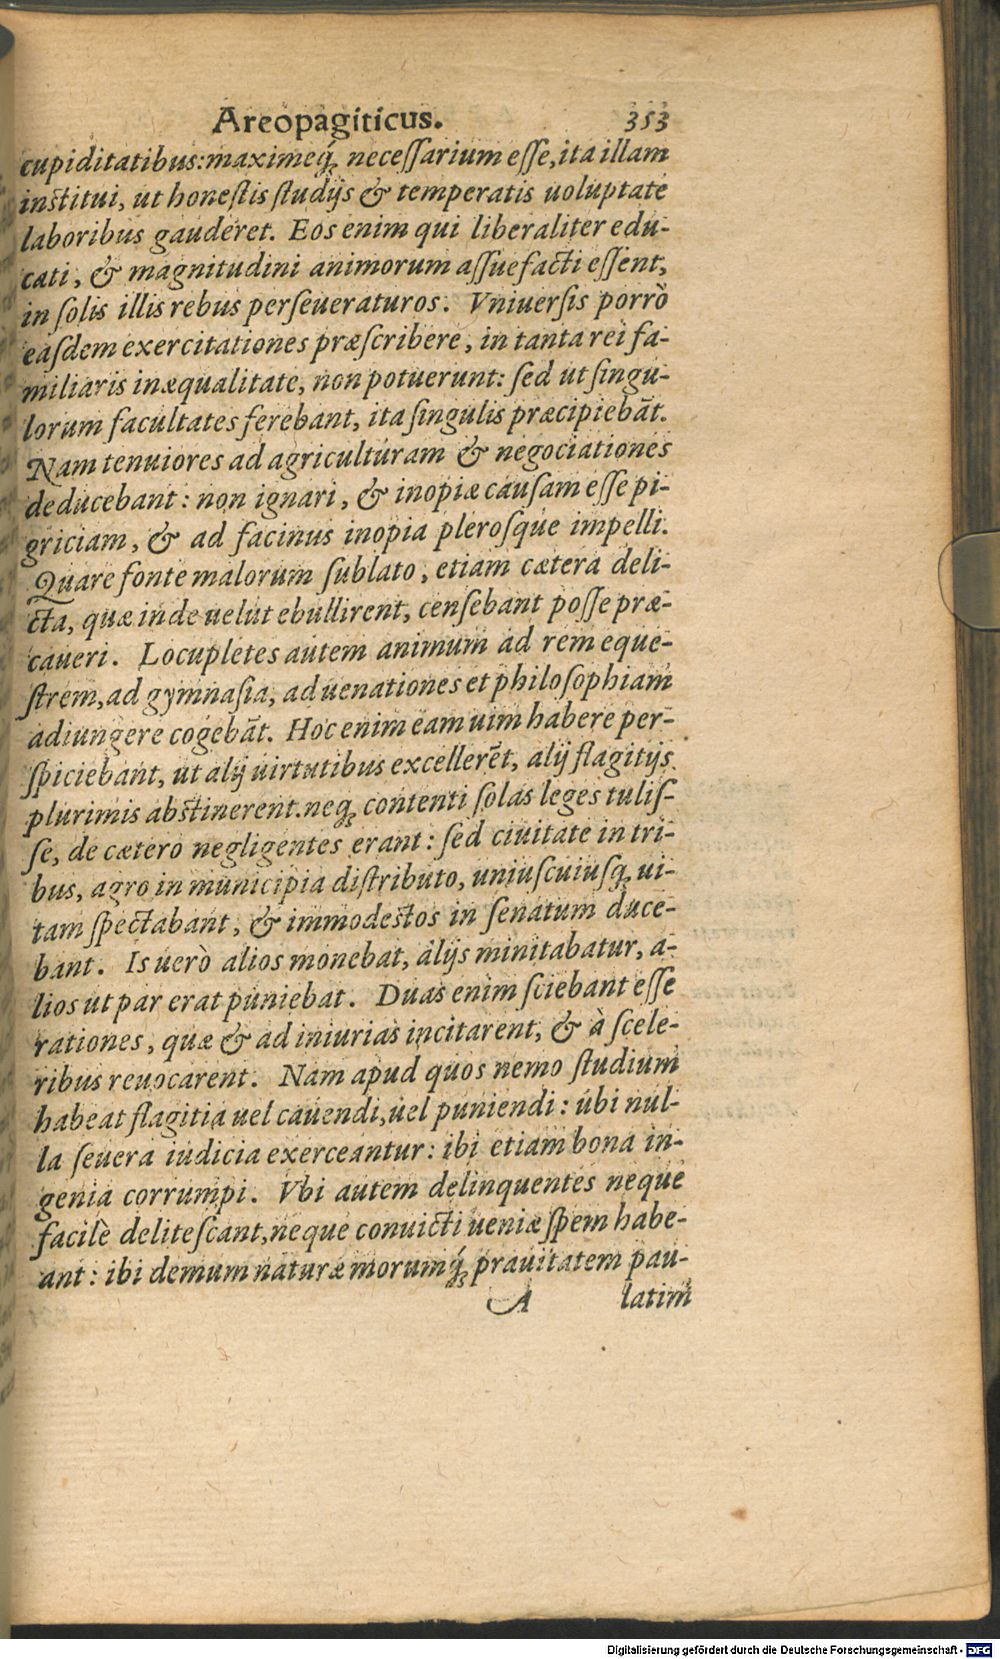 Areopagiticus. 353
cupiditatibus: maximeq́; neceſſarium eſſe, ita illam
inſtitui, ut honeſtis ſtudijs & temperatis uoluptate
laboribus gauderet. Eos enim qui liberaliter edu-
cati, & magnitudini animorum aſſuefacti eſſent,
in ſolis illis rebus perſeueraturos. Vniuerſis porrò
eaſdem exercitationes præſcribere, in tanta rei fa-
miliaris inæqualitate, non potuerunt: ſed ut ſingu-
lorum facultates ferebant, ita ſingulis præcipiebāt.
Nam tenuiores ad agriculturam & negociationes
deducebant: non ignari, & inopiæ cauſam eſſe pi-
griciam, & ad facinus inopia pleroſque impelli.
Quare fonte malorum ſublato, etiam cætera deli-
cta, quæ inde uelut ebullirent, cenſebant poſſe præ-
caueri. Locupletes autem animum ad rem eque-
ſtrem, ad gymnaſia, ad uenationes et philoſophiam
adiungere cogebāt. Hoc enim eam uim habere per-
ſpiciebant, ut alij uirtutibus excellerēt, alij flagitijs
plurimis abſtinerent. neq; contenti ſolas leges tuliſ-
ſe, de cætero negligentes erant: ſed ciuitate in tri-
bus, agro in municipia diſtributo, uniuſcuiuſq; ui-
tam ſpectabant, & immodeſtos in ſenatum duce-
bant. Is uerò alios monebat, alijs minitabatur, a-
lios ut par erat puniebat. Duas enim ſciebant eſſe
rationes, quæ & ad iniurias incitarent, & à ſcele-
ribus reuocarent. Nam apud quos nemo ſtudium
habeat flagitia uel cauendi, uel puniendi: ubi nul-
la ſeuera iudicia exerceantur: ibi etiam bona in-
genia corrumpi. Vbi autem delinquentes neque
facilè deliteſcant, neque conuicti ueniæ ſpem habe-
ant: ibi demum naturæ morumq́; prauitatem pau-
A latim
Digitalisierung gefördert durch die Deutsche Forschungsgemeinschaft - DFG